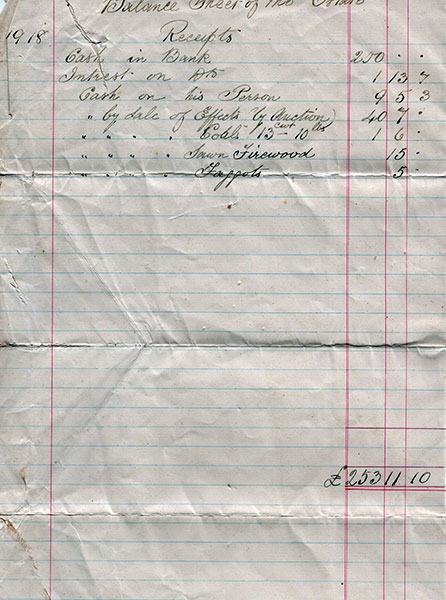 Balance Sheet of the Estate
1918 Receipts
Cash in Bank 250 " "
Intrest on Do 1 13 7
Cash on his Person 9 5 3
" by Sale of Effects by Auction 40 7 "
" " " " Coals 13 cwt 10 lbs 1 6 "
" " " " Sawn Firewood 15 "
" " " " Faggots 5 "
£ 253 11 10